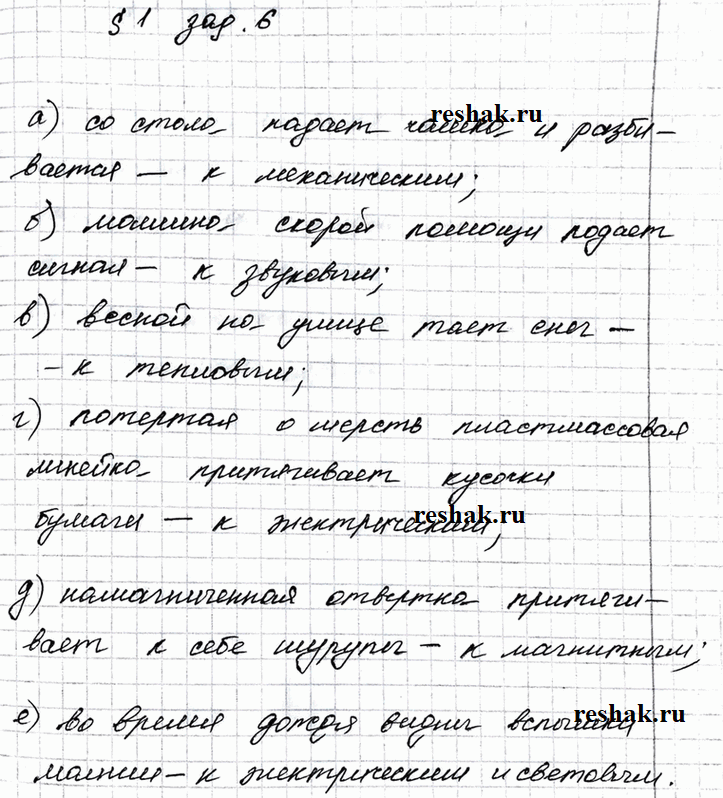 § 1 зад. 6
а) со стола падает чашка и разби-
вается — к механическим;
б) машина скорой помощи подает
сигнал — к звуковым;
в) весной на улице тает снег —
- к тепловым;
г) потертая о шерсть пластмассовая
линейка притягивает кусочки
бумаги — к электрическим;
д) намагниченная отвертка притяги-
вает к себе шурупы — к магнитным;
е) во время дождя видны вспышки
молнии — к электрическим и световым.
reshak.ru
reshak.ru
reshak.ru